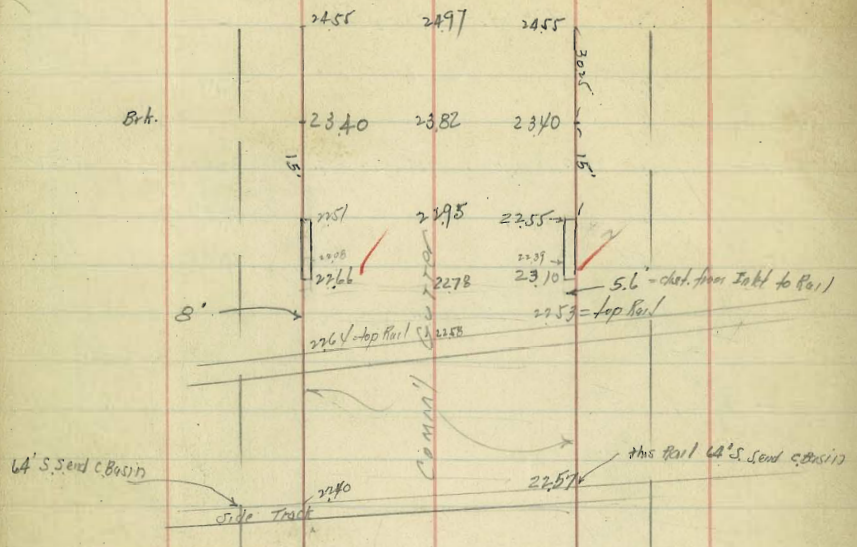 2455 2497 2455
30.25
Brk. 2340 2382 2340
15' 15'
2251 2295 2255
2208 2239
2266 2278 2310
5.6' = dist. from Inlet to Rail
8' 2253 = top Rail
2264 = top Rail 2258
Comm'l
64' S. S. end C. Basin
this Rail 64' S. S. end C. Basin
2240 2257
Side Track